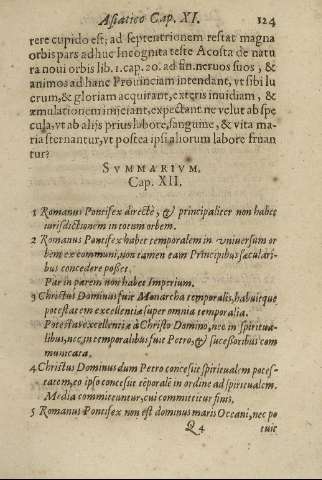 Asiatico Cap. XI. 124
rere cupido est; ad septentrionem restat magna
orbis pars adhuc Incognita teste Acosta de natu
ra noui orbis lib. 1. cap. 20. ad fin. neruos suos, &
animos ad hanc Prouinciam intendant, vt sibi lu
crum, & gloriam acquirant, exteris inuidiam, &
æmulationem iniciant, expectant ne velut ab spe
cula, vt ab alijs prius labore, sanguine, & vita ma
ria sternantur, vt postea ipsi aliorum labore fruan
tur?
SVMMARIVM.
Cap. XII.
1 Romanus Pontifex directè, & principaliter non habet
iurisdictionem in totum orbem.
2 Romanus Pontifex habet temporalem in vniuersum or
bem ex communi, non tamen eam Principibus sæculari-
bus concedere posset.
Par in parem non habet Imperium.
3 Christus Dominus fuit Monarcha temporalis, habuitque
potestatem excellentia super omnia temporalia.
Potestas excellentiæ à Christo Domino, nec in spiritua-
libus, nec in temporalibus fuit Petro, & sucessoribus com
municata.
4 Christus Dominus dum Petro concessit spiritualem potes-
tatem, eo ipso concessit tẽporalẽ in ordine ad spiritualem.
Media committuntur, cui committitur finis.
5 Romanus Pontifex non est dominus maris Oceani, nec po
Q4 tuit